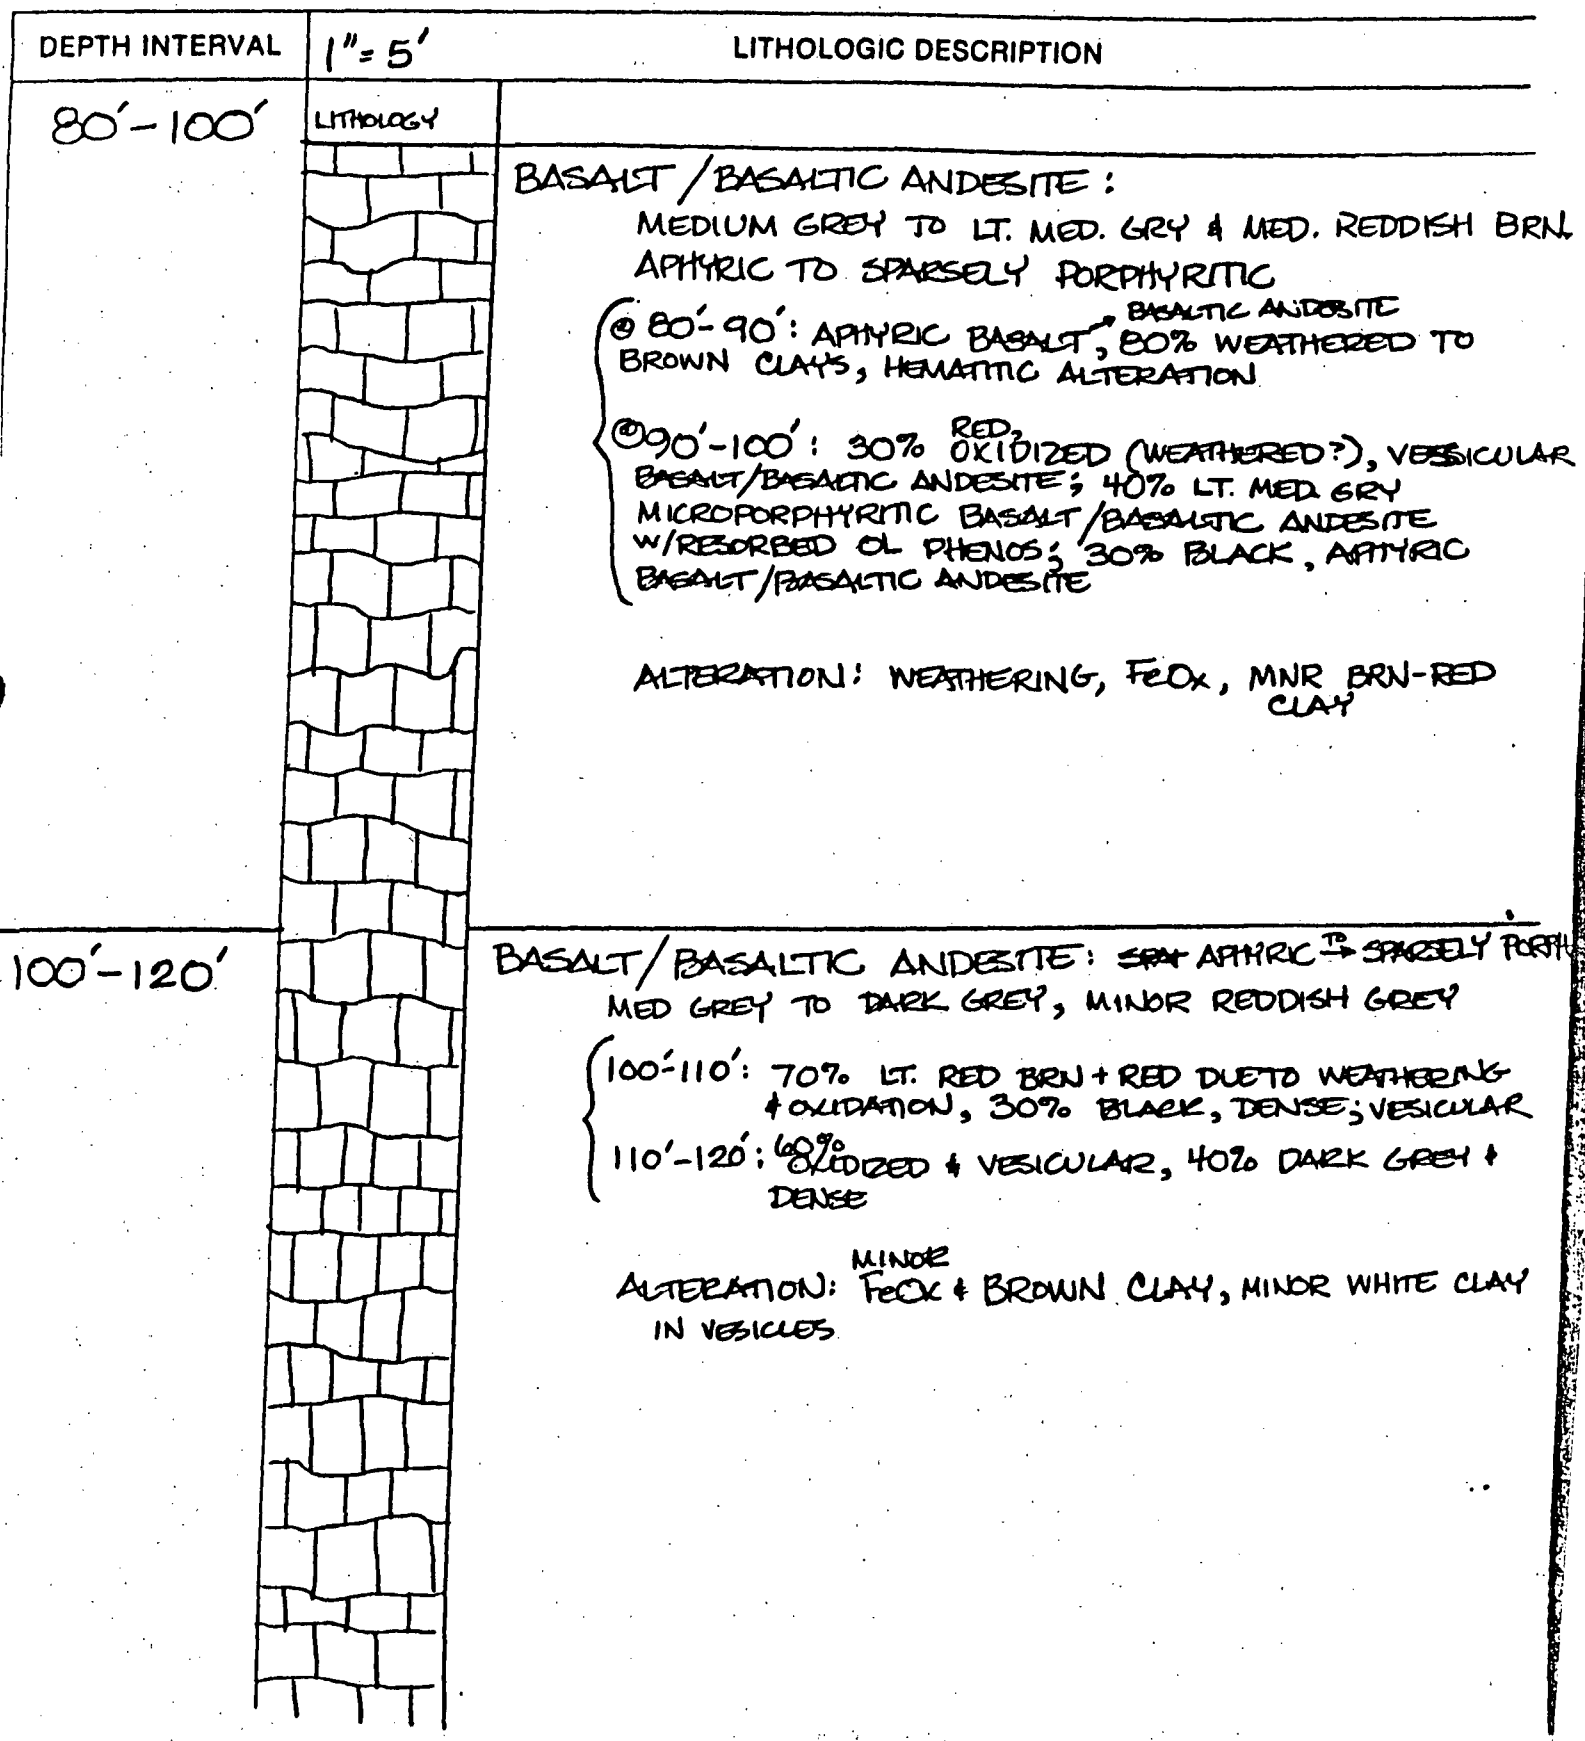 DEPTH INTERVAL 1"= 5' LITHOLOGIC DESCRIPTION
80'-100' LITHOLOGY
BASALT / BASALTIC ANDESITE :
MEDIUM GREY TO LT. MED. GRY & MED. REDDISH BRN.
APHYRIC TO SPARSELY PORPHYRITIC
BASALTIC ANDESITE
@ 80'-90': APHYRIC BASALT, 80% WEATHERED TO
BROWN CLAYS, HEMATITIC ALTERATION
RED,
@ 90'-100': 30% OXIDIZED (WEATHERED?), VESSICULAR
BASALT/BASALTIC ANDESITE; 40% LT. MED. GRY
MICROPORPHYRITIC BASALT/BASALTIC ANDESITE
W/RESORBED OL PHENOS; 30% BLACK, APHYRIC
BASALT/BASALTIC ANDESITE
ALTERATION: WEATHERING, FeOx, MNR BRN-RED
CLAY
100'-120' BASALT/BASALTIC ANDESITE: APHYRIC TO → SPARSELY PORPH
MED GREY TO DARK GREY, MINOR REDDISH GREY
100'-110': 70% LT. RED BRN + RED DUE TO WEATHERING
& OXIDATION, 30% BLACK, DENSE; VESICULAR
60%
110'-120': OXIDIZED & VESICULAR, 40% DARK GREY &
DENSE
MINOR
ALTERATION: FeOx & BROWN CLAY, MINOR WHITE CLAY
IN VESICLES